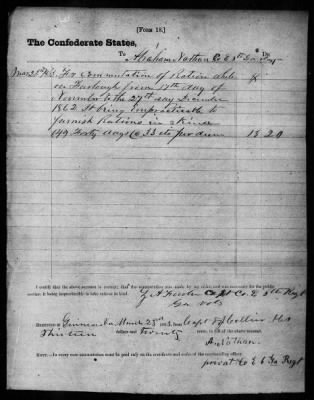 [FORM 15.]
The Confederate States,
To Abraham Nathan Co E 8th Ga Regt Dr.
Mar 25th 1863 For commutation of Rations while
on Furlough from 17th day of
November to the 27th day December
1862 It being impracticable to
furnish Rations in Kind
Forty days @ 33 cts per diem 13 20
I certify that the above account is correct; that the commutation was made by my order and was necessary for the public
service, it being impracticable to take rations in kind.
Capt Co. E 8th Regt
Ga Vols
RECEIVED March 25th 1863, from Capt
Thirteen dollars and Twenty cents, in full of the above account.
A. Nathan.
private Co E Ga Regt
NOTE.—In every case commutation must be paid only on the certificate and order of the commanding officer.